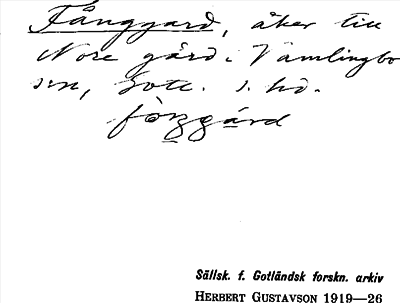 Fånggard, åker till
Nore gård i Vamlingbo
sn, Gotl. s. hd.
fångg​ård
Sällsk. f. Gotländsk forskn. arkiv
HERBERT GUSTAVSON 1919—26